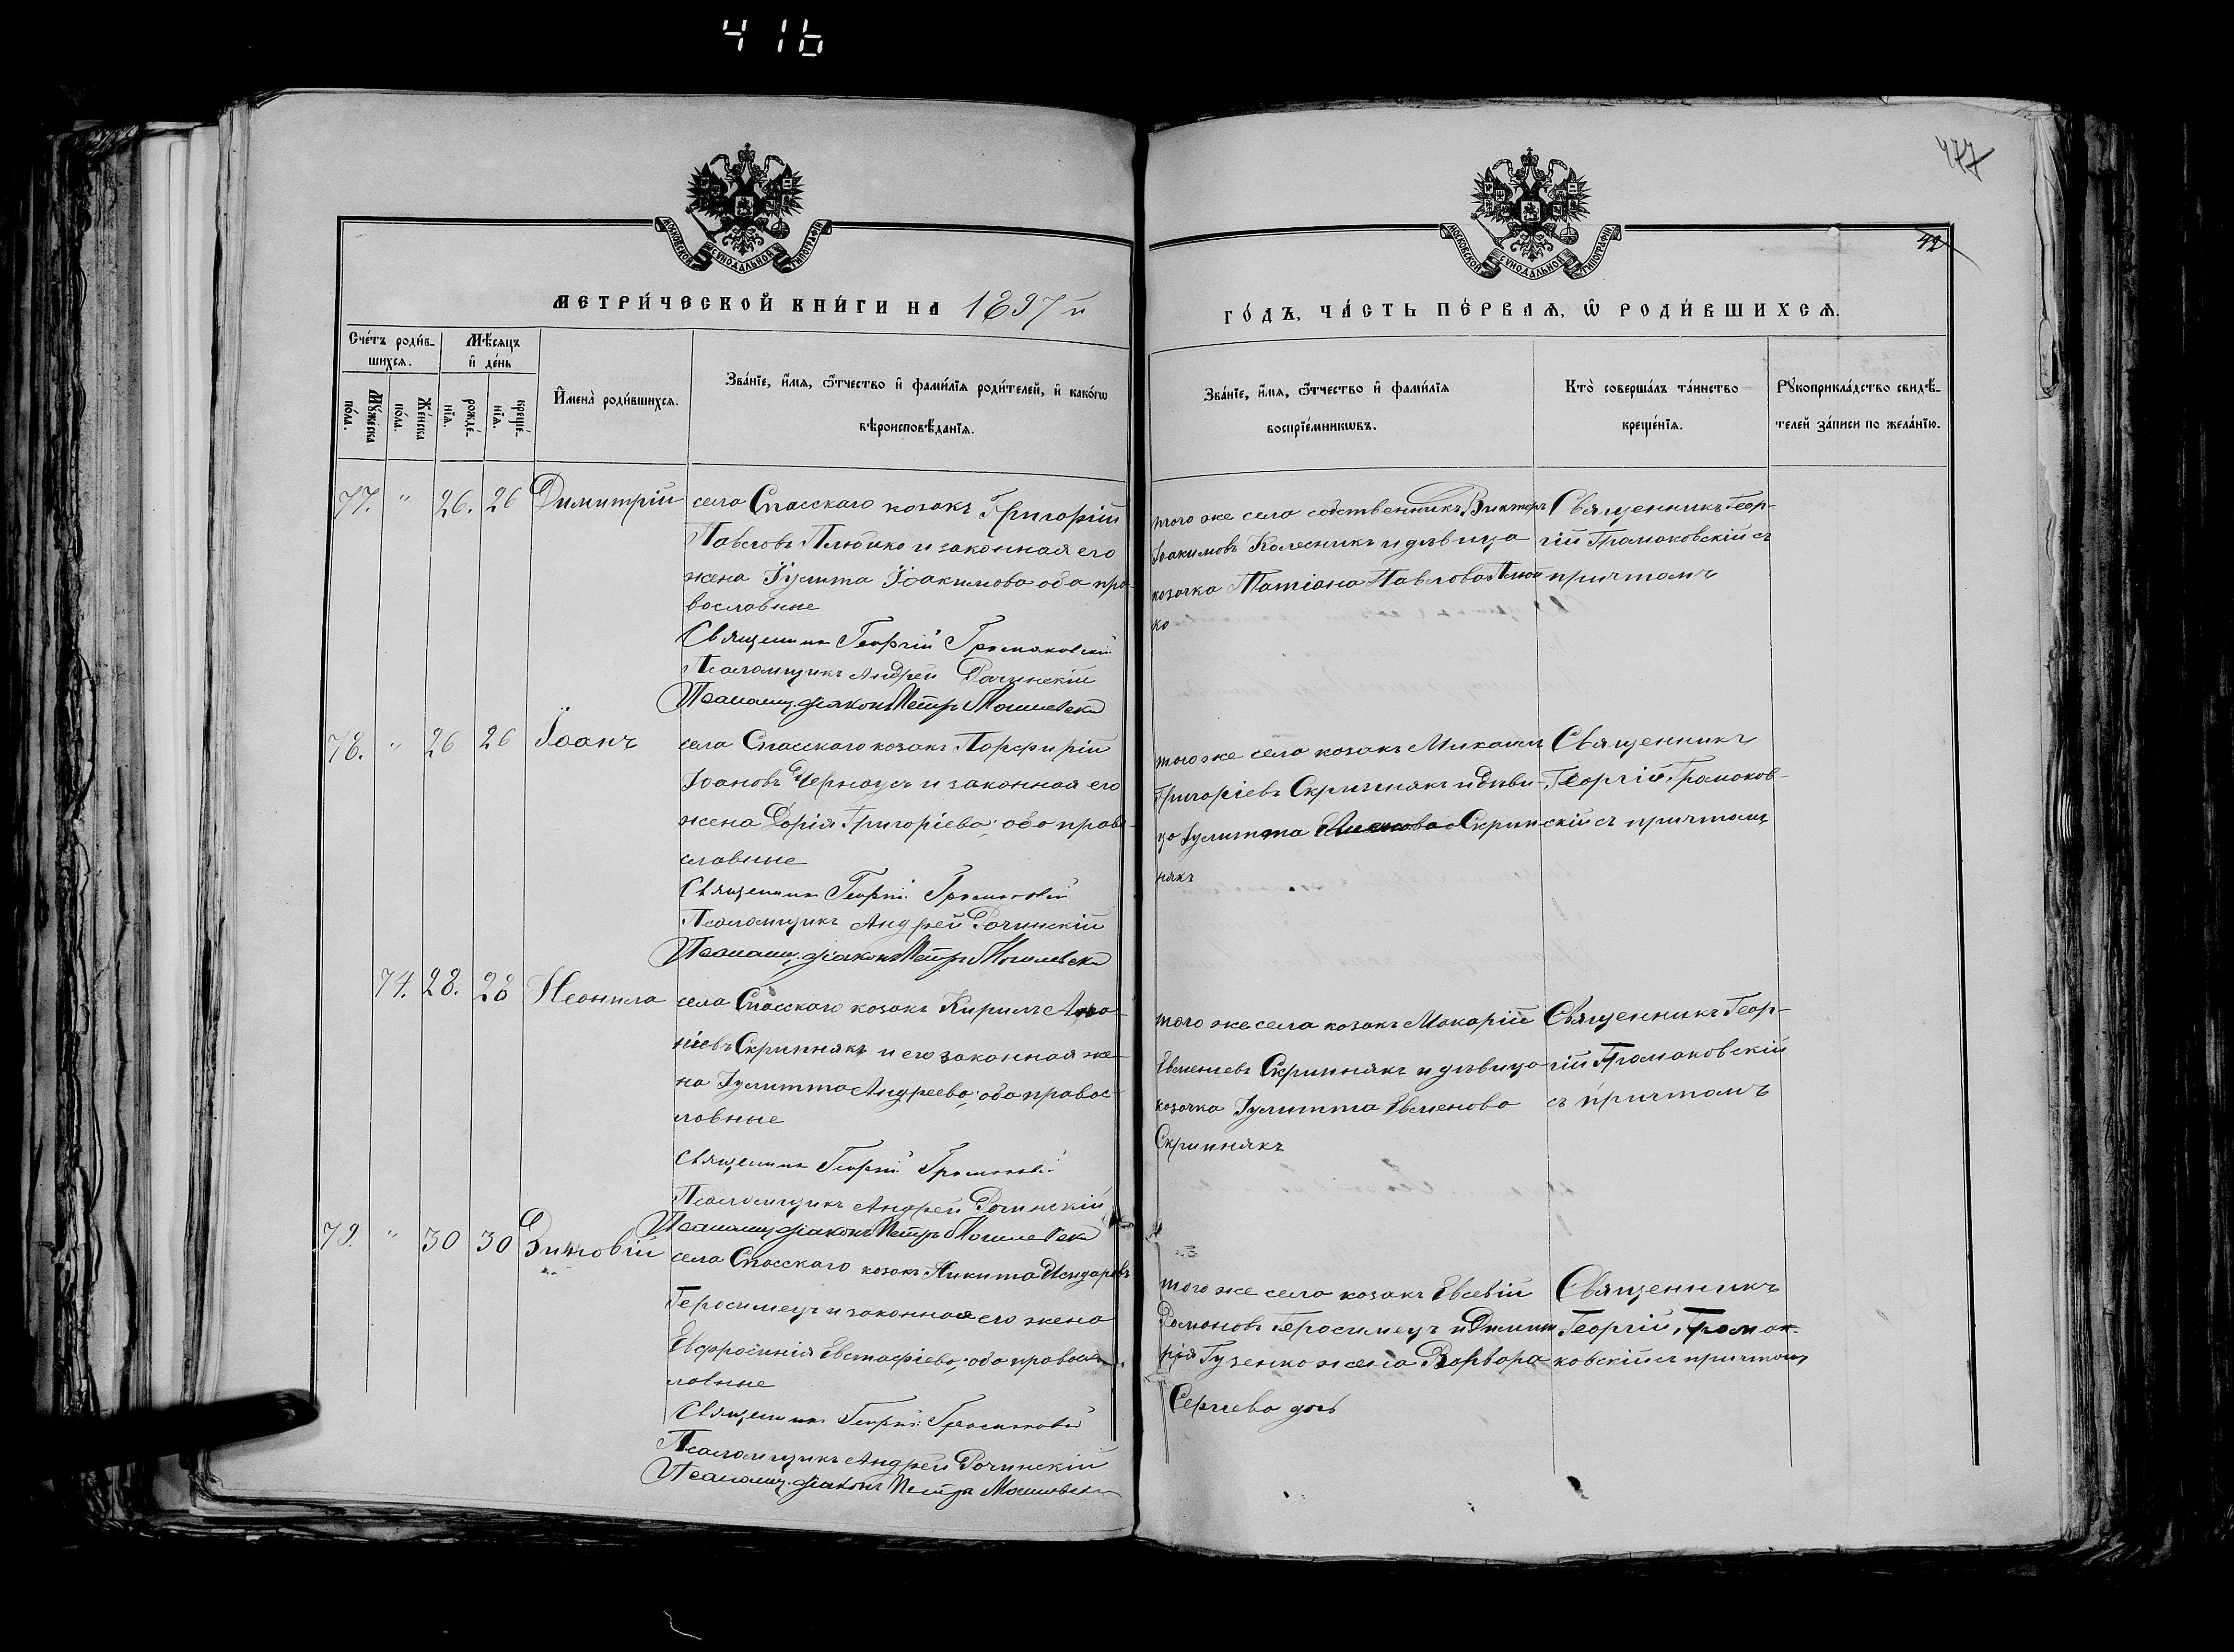 416
477
42
МОСКОВСКОЙ СѴНОДАЛЬНОЙ ТИПОГРАФІИ
МОСКОВСКОЙ СѴНОДАЛЬНОЙ ТИПОГРАФІИ
МЕТРИ́ЧЕСКОЙ КНИ́ГИ НА 1897 й
ГО́ДЪ, ЧА́СТЬ ПЕ́РВАѦ, Ѿ РОДИ́ВШИХСѦ.
Сче́тъ роди́в-
шихсѧ.
Мѣ́сяцъ
и҆ де́нь
Мꙋ́жеска
по́ла.
Же́нска
по́ла.
рожде́-
нїѧ.
креще́-
нїѧ.
И҆мена̀ роди́вшихсѧ.
Зва́нїе, и҆́мѧ, ѻ҆́тчество и҆ фами́лїѧ роди́телей, и҆ како́гѡ
вѣроисповѣ́данїѧ.
Зва́нїе, и҆́мѧ, ѻ҆́тчество и҆ фами́лїѧ
воспрїе́мникѡвъ.
Кто̀ соверша́лъ та́инство
креще́нїѧ.
Рꙋкоприкла́дство свидѣ́-
телей за́писи по жела́нїю.
77. " 26. 26 Димитрій
села Спасскаго козакъ Григорій
Павловъ Плюйко и законная его
жена Іулита Іоакимова оба пра-
вославные
Священник Георгій Грамаковскій
Псаломщикъ Андрей Рачинскій
Псаломщ. діаконъ Петръ Могилевскі
того же села собственникъ Викторъ
Іоакимовъ Колесникъ и дѣвица
козачка Татіана Павлова Плюй
ко
Священникъ Геор-
гій Грамаковскій съ
причтомъ
78. " 26 26 Іоанъ
села Спасскаго козакъ Порфирій
Іоановъ Черноусъ и законная его
жена Дарія Григоріева; оба право-
славные
Священник Георгій Грамаковскій
Псаломщикъ Андрей Рачинскій
Псаломщ. діаконъ Петръ Могилевскі
того же села козакъ Михаилъ
Григоріевъ Скрипнякъ и дѣви-
ца Іулитта Скрип
някъ
Священникъ
Георгій Грамаков-
скій съ причтомъ
74. 28. 28 Неонила
села Спасскаго козакъ Кирилъ
ніевъ Скрипнякъ и его законная же-
на Іулитта Андреева; оба правос-
лавные
Священник Георгій Грамаковскій
Псаломщикъ Андрей Рачинскій
Псаломщ. діаконъ Петръ Могилевскі
того же села козакъ Макарій
Евменіевъ Скрипнякъ и дѣвица
козачка Іулитта Евменова
Скрипнякъ
Священникъ Геор-
гій Грамаковскій
съ причтомъ
79. " 30 30 Зиновій
села Спасскаго козакъ Никита Исидоровъ
Герасимецъ и законная его жена
Евфросинія Евстафіева; оба правос-
лавные
Священник Георгій Грамаковскій
Псаломщикъ Андрей Рачинскій
Псаломщ. діаконъ Петръ Могилевскі
того же села козакъ Евсевій
Романовъ Герасимецъ и Димит
рія Гузенко жена Варвара
Сергіева дочь
Священникъ
Георгій Грамак-
ковскій съ причтомъ